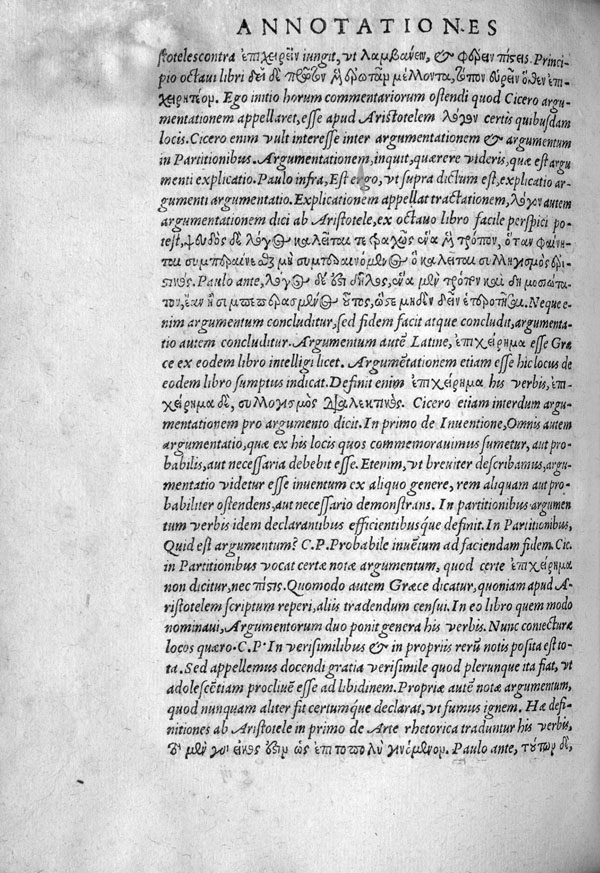 ANNOTATIONES
stoteles contra ἐπιχειρεῖν iungit, vt λαμβάνειν, & φέρειν πίστεις. Princi-
pio octaui libri δεῖ δὲ πρῶτον μὲν ἐρωτᾶν μέλλοντα, τόπον εὑρεῖν ὅθεν ἐπι-
χειρητέον. Ego initio horum commentariorum ostendi quod Cicero argu-
mentationem appellaret, esse apud Aristotelem λόγον certis quibusdam
locis. Cicero enim vult interesse inter argumentationem & argumentum
in Partitionibus. Argumentationem, inquit, quærere videris, quæ est argu-
menti explicatio. Paulo infra, Est ergo, vt supra dictum est, explicatio ar-
gumenti argumentatio. Explicationem appellat tractationem, λόγον autem
argumentationem dici ab Aristotele, ex octauo libro facile perspici po-
test, ψευδὸς δὲ λόγος καλεῖται τετραχῶς ἕνα μὲν τρόπον, ὅταν φαίνη-
ται συμπεραίνεσθαι μὴ συμπεραινόμενος ὃ καλεῖται συλλογισμὸς ἐρι-
στικός. Paulo ante, λόγος δὲ ἐστι δῆλος, ἕνα μὲν τρόπον καὶ δημοσιώτα-
τον, ἐὰν ᾖ συμπεπερασμένος οὕτως, ὥστε μηδὲν δεῖν ἐπερωτῆσαι. Neque e-
nim argumentum concluditur, sed fidem facit atque concludit, argumenta-
tio autem concluditur. Argumentum autē Latine, ἐπιχείρημα esse Græ-
ce ex eodem libro intelligi licet. Argumētationem etiam esse hic locus de
eodem libro sumptus indicat. Definit enim ἐπιχείρημα his verbis, ἐπι-
χείρημα δὲ, συλλογισμὸς διαλεκτικός. Cicero etiam interdum argu-
mentationem pro argumento dicit. In primo de Inuentione, Omnis autem
argumentatio, quæ ex his locis quos commemorauimus sumetur, aut pro-
babilis, aut necessaria debebit esse. Etenim, vt breuiter describamus, argu-
mentatio videtur esse inuentum ex aliquo genere, rem aliquam aut pro-
babiliter ostendens, aut necessario demonstrans. In partitionibus argumen
tum verbis idem declarantibus efficientibusque definit. In Partitionibus,
Quid est argumentum? C.P. Probabile inuētum ad faciendam fidem. Cic.
in Partitionibus vocat certæ notæ argumentum, quod certe ἐπιχείρημα
non dicitur, nec πίστις. Quomodo autem Græce dicatur, quoniam apud A-
ristotelem scriptum reperi, aliis tradendum censui. In eo libro quem modo
nominaui, Argumentorum duo ponit genera his verbis. Nunc coniecturæ
locos quæro. C.P. In verisimilibus & in propriis rerū notis posita est to-
ta. Sed appellemus docendi gratia verisimile quod plerunque ita fiat, vt
adolescētiam procliuē esse ad libidinem. Propriæ autē notæ argumentum,
quod nunquam aliter fit certumque declarat, vt fumus ignem. Hæ defi-
nitiones ab Aristotele in primo de Arte rhetorica traduntur his verbis,
τὸ μὲν γὰρ εἰκός ἐστιν ὡς ἐπιτοπολὺ γινόμενον. Paulo ante, τούτων δὲ,